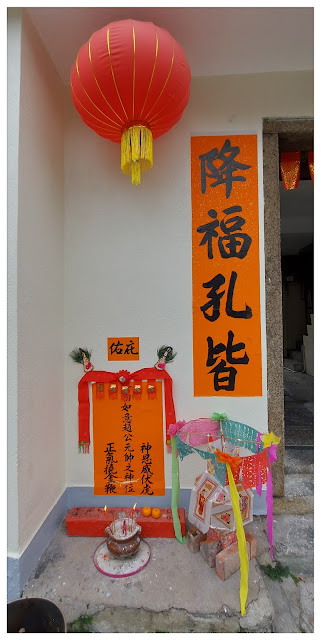 降福孔皆
庇佑
神恩威伏虎
如意趙公元帥之神位
正氣繞金鞭